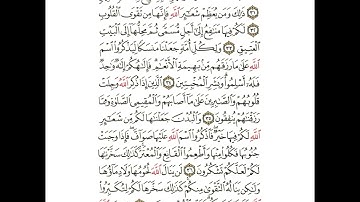 ٣١ ذَٰلِكَ وَمَن يُعَظِّمْ شَعَٰٓئِرَ ٱللَّهِ فَإِنَّهَا مِن تَقْوَى ٱلْقُلُوبِ
٣٢ لَكُمْ فِيهَا مَنَٰفِعُ إِلَىٰٓ أَجَلٍ مُّسَمًّى ثُمَّ مَحِلُّهَآ إِلَى ٱلْبَيْتِ
ٱلْعَتِيقِ ٣٣ وَلِكُلِّ أُمَّةٍ جَعَلْنَا مَنسَكًا لِّيَذْكُرُوا۟ ٱسْمَ
ٱللَّهِ عَلَىٰ مَا رَزَقَهُم مِّنۢ بَهِيمَةِ ٱلْأَنْعَٰمِ فَإِلَٰهُكُمْ إِلَٰهٌ وَٰحِدٌ
فَلَهُۥٓ أَسْلِمُوا۟ وَبَشِّرِ ٱلْمُخْبِتِينَ ٣٤ ٱلَّذِينَ إِذَا ذُكِرَ ٱللَّهُ وَجِلَتْ
قُلُوبُهُمْ وَٱلصَّٰبِرِينَ عَلَىٰ مَآ أَصَابَهُمْ وَٱلْمُقِيمِى ٱلصَّلَوٰةِ وَمِمَّا
رَزَقْنَٰهُمْ يُنفِقُونَ ٣٥ وَٱلْبُدْنَ جَعَلْنَٰهَا لَكُم مِّن شَعَٰٓئِرِ
ٱللَّهِ لَكُمْ فِيهَا خَيْرٌ فَٱذْكُرُوا۟ ٱسْمَ ٱللَّهِ عَلَيْهَا صَوَآفَّ فَإِذَا وَجَبَتْ
جُنُوبُهَا فَكُلُوا۟ مِنْهَا وَأَطْعِمُوا۟ ٱلْقَانِعَ وَٱلْمُعْتَرَّ كَذَٰلِكَ سَخَّرْنَٰهَا
لَكُمْ لَعَلَّكُمْ تَشْكُرُونَ ٣٦ لَن يَنَالَ ٱللَّهَ لُحُومُهَا وَلَا دِمَآؤُهَا
وَلَٰكِن يَنَالُهُ ٱلتَّقْوَىٰ مِنكُمْ كَذَٰلِكَ سَخَّرَهَا لَكُمْ لِتُكَبِّرُوا۟